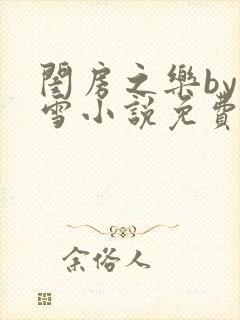 閨房之樂by
雪小說免費
余俗人